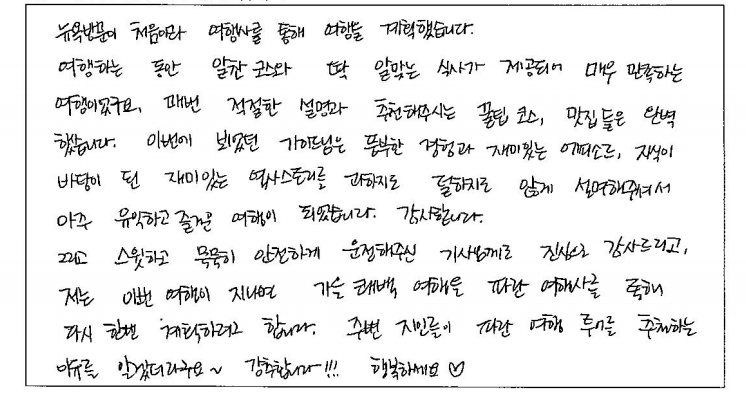 뉴욕방문이 처음이라 여행사를 통해 여행을 계획했습니다.
여행하는 동안 알찬 코스와 딱 알맞는 식사가 제공되어 매우 만족하는
여행이었구요, 매번 적절한 설명과 추천해주시는 꿀팁 코스, 맛집들은 완벽
했습니다. 이번에 뵈었던 가이드님은 풍부한 경험과 재미있는 에피소드, 지식이
바탕이 된 재미있는 역사스토리를 과하지도 덜하지도 않게 설명해주셔서
아주 유익하고 즐거운 여행이 되었습니다. 감사합니다.
그리고 스윗하고 묵묵히 안전하게 운전해주신 기사님께도 진심으로 감사드리고,
저는 이번 여행이 지나면 가을 태백 여행을 따란 여행사를 통해
다시 한번 계획하려고 합니다. 주변 지인들이 따란 여행 투어를 추천하는
이유를 알겠더라구요~ 강추합니다!!! 행복하세요♡